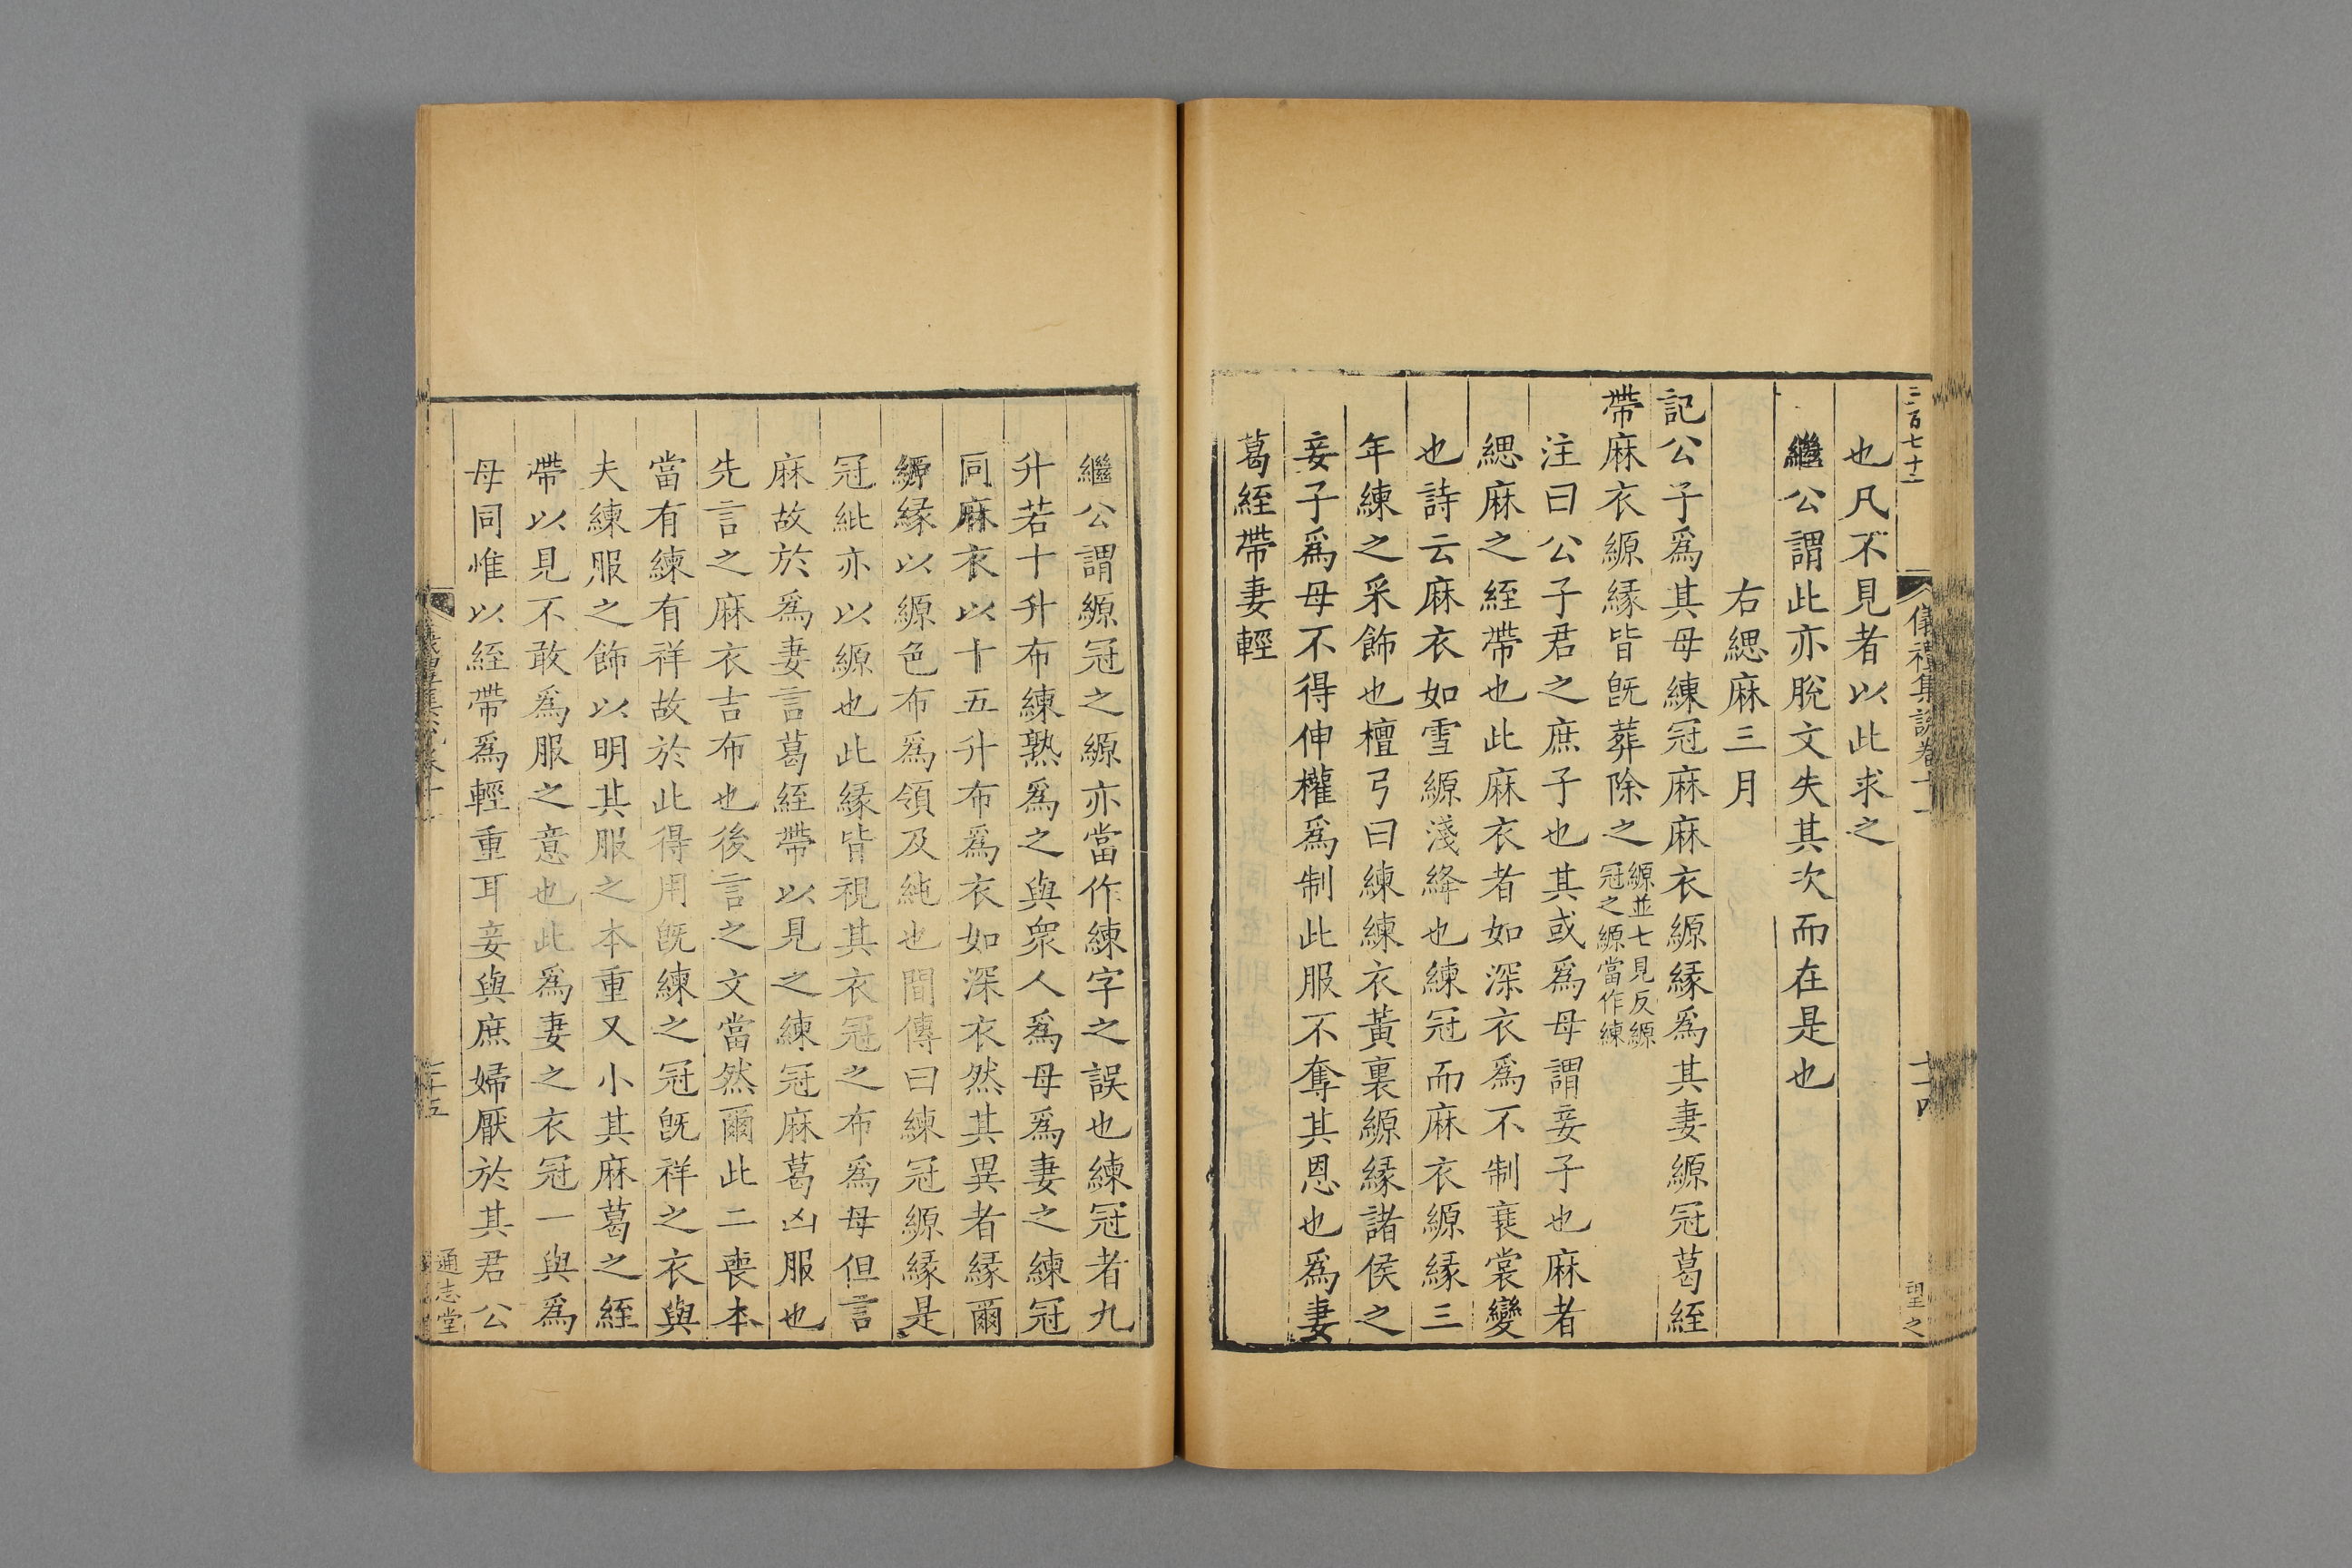 三百七十二
儀禮集說卷十一
七十四
也凡不見者以此求之
繼公謂此亦脫文失其次而在是也
右緦麻三月
記公子爲其母練冠麻麻衣縓緣爲其妻縓冠葛絰
帶麻衣縓緣皆旣葬除之
縓並七見反縓
冠之縓當作練
注曰公子君之庶子也其或爲母謂妾子也麻者
緦麻之絰帶也此麻衣者如深衣爲不制衰裳變
也詩云麻衣如雪縓淺絳也練冠而麻衣縓緣三
年練之采飾也檀弓曰練練衣黃裏縓緣諸侯之
妾子爲母不得伸權爲制此服不奪其恩也爲妻
葛絰帶妻輕
繼公謂縓冠之縓亦當作練字之誤也練冠者九
升若十升布練熟爲之與衆人爲母爲妻之練冠
同麻衣以十五升布爲衣如深衣然其異者緣爾
縓緣以縓色布爲領及純也間傳曰練冠縓緣是
冠紕亦以縓也此緣皆視其衣冠之布爲母但言
麻故於爲妻言葛絰帶以見之練冠麻葛凶服也
先言之麻衣吉布也後言之文當然爾此二喪本
當有練有祥故於此得用旣練之冠旣祥之衣與
夫練服之飾以明其服之本重又小其麻葛之絰
帶以見不敢爲服之意也此爲妻之衣冠一與爲
母同惟以絰帶爲輕重耳妾與庶婦厭於其君公
通志堂